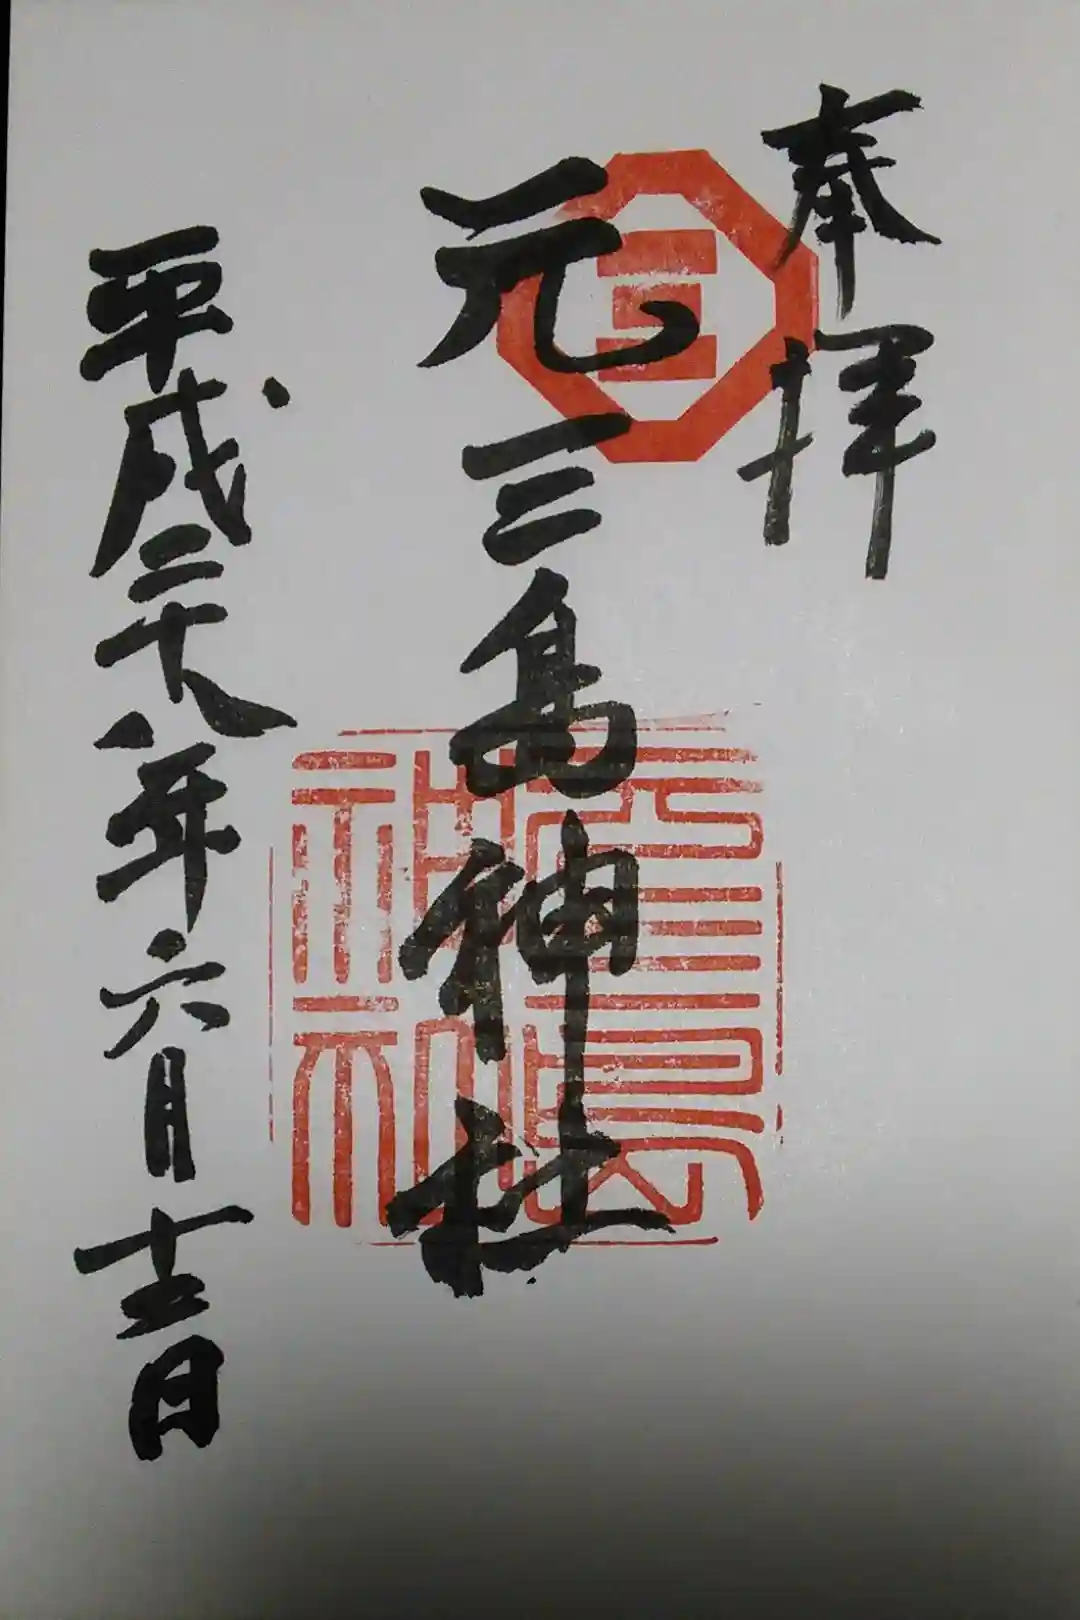 奉拝
三
元三島神社
元三島神社
平成二十八年六月十二日